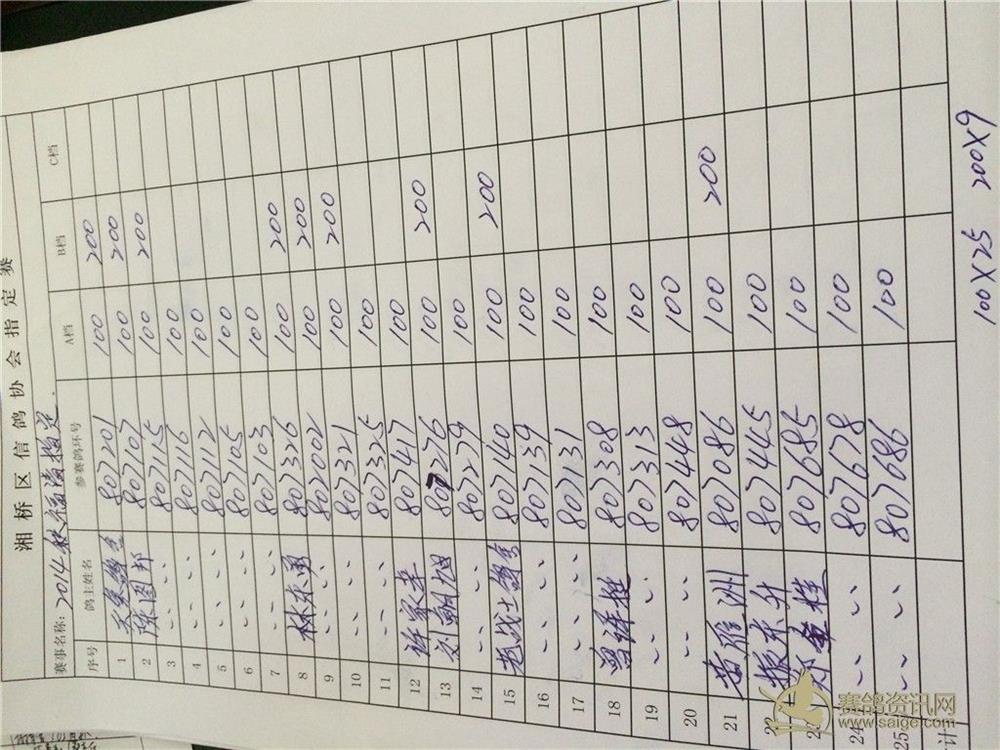 湘桥区信鸽协会指定赛
赛事名称: 2014秋福清指定.
序号 鸽主姓名 参赛鸽环号 A档 B档 C档
1 807201 100 200
2 陈图邦 807107 100 200
3 〃 807115 100 200
4 〃 807116 100
5 〃 807112 100
6 〃 807105 100
7 〃 807103 100
8 林东勇 807326 100 200
9 〃 807002 100 200
10 〃 807321 100 200
11 〃 807325 100
12 807417 100
13 刘朝旭 807276 100 200
14 〃 807279 100
15 战士鸽舍 807140 100 200
16 〃 807139 100
17 〃 807131 100
18 807308 100
19 〃 807313 100
20 〃 807448 100
21 黄雁洲 807086 100 200
22 振东升 807445 100
23 807685 100
24 〃 807678 100
25 〃 807686 100
计
100X25 200X9
赛鸽资讯网
www.saige.com